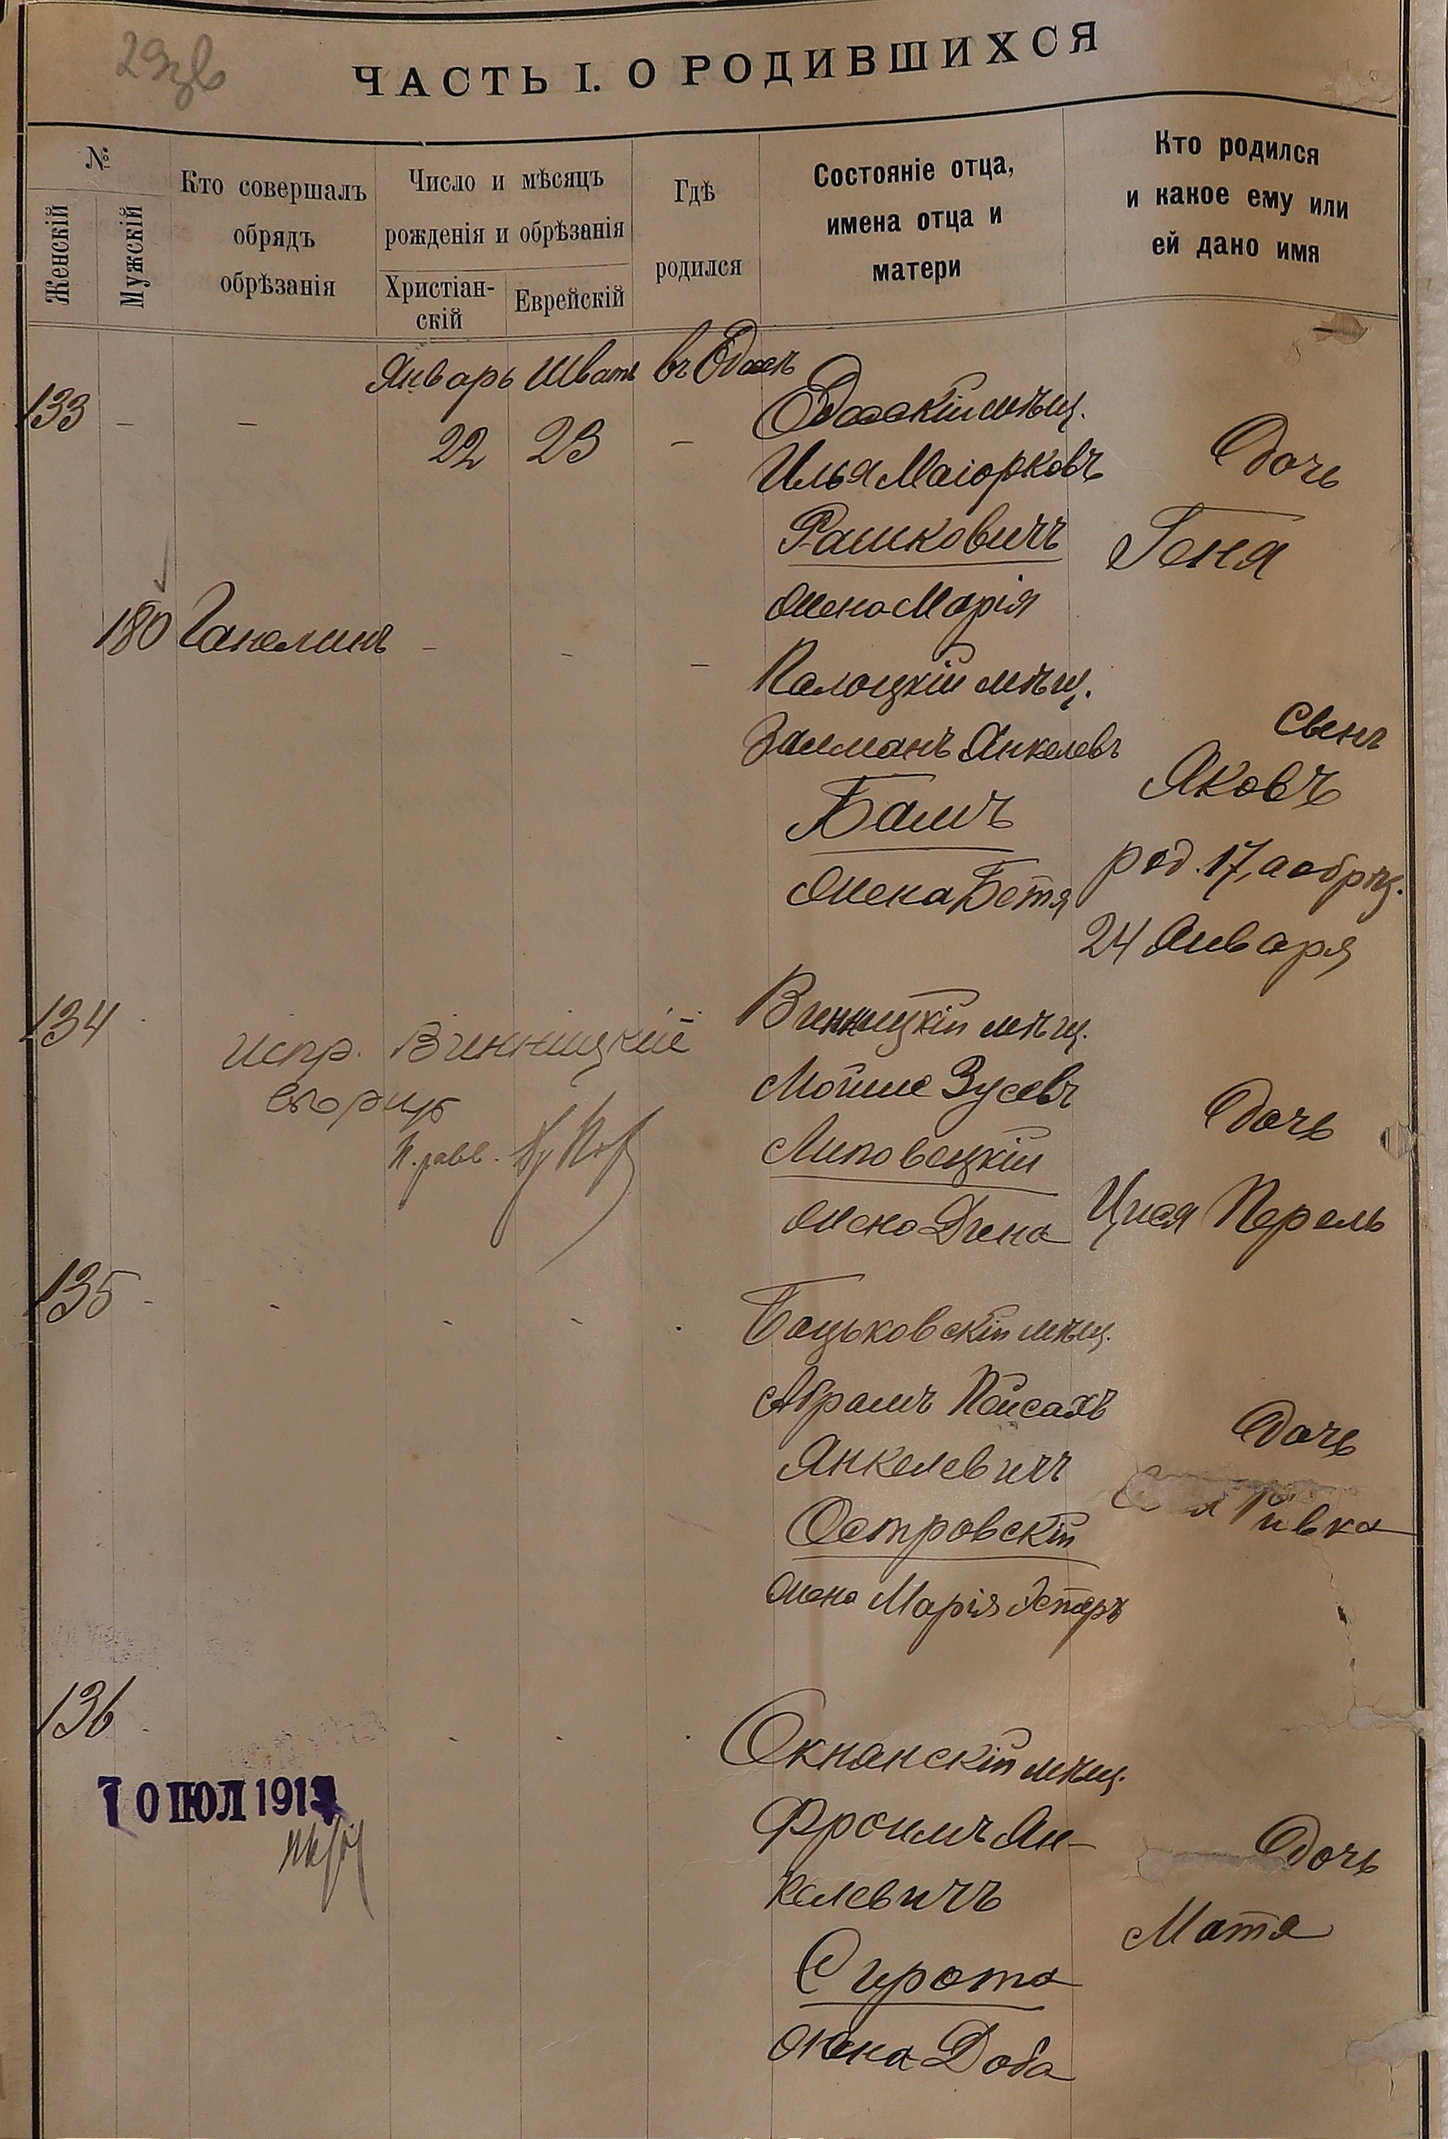 ЧАСТЬ I. О РОДИВШИХСЯ
№
Женскій
Мужскій
Кто совершалъ
обрядъ
обрѣзанія
Число и мѣсяцъ
рожденія и обрѣзанія
Христіан-
скій
Еврейскій
Гдѣ
родился
Состояніе отца,
имена отца и
матери
Кто родился
и какое ему или
ей дано имя
Январь Шватъ въ Одессѣ
133 - - 22 23 -
Одесскій мѣщ.
Илья Маіорковъ
Рашковичъ
жена Марія
Дочь
Геня
180 Ганелинъ - - -
Полоцкій мѣщ.
Залманъ Янкелевъ
Бамъ
жена Бетя
Сынъ
Яковъ
род. 17, а обрѣз.
24 Января
134
испр. Винницкій
П. равв.
Винницкій мѣщ.
Мойше Зусевъ
Липовецкій
жена Дина
Дочь
Цися Перель
135 - - - - .
мѣщ.
Абрамъ Пейсахъ
Янкелевичъ
Островскій
жена Марія Эстеръ
Дочь
Ривка
136
Окнянскій мѣщ.
Фроимъ Ян-
келевичъ
Сирота
жена Доба
Дочь
Матя
10 ІЮЛ 191